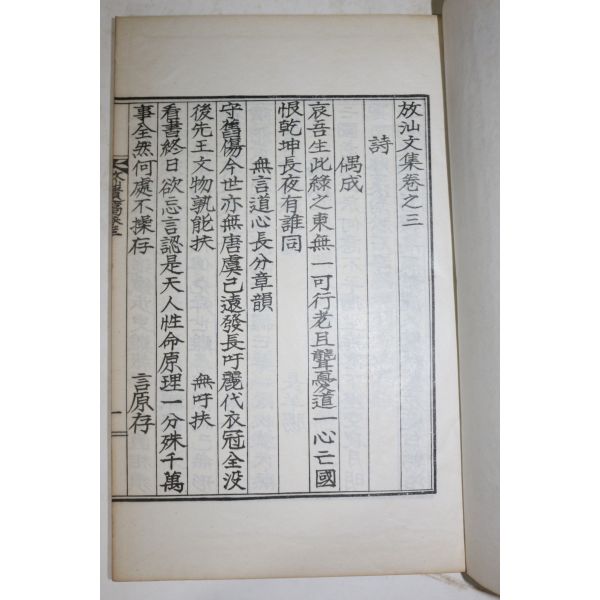 放汕文集卷之三
詩
偶成
哀吾生此綠之東無一可行老且聾憂道一心亡國
恨乾坤長夜有誰同
無言道心長分章韻
守舊傷今世亦無唐虞已遠發長吁麗代衣冠全沒
後先王文物孰能扶 無吁扶
看書終日欲忘言認是天人性命原理一分殊千萬
事全然何處不操存 言原存
一